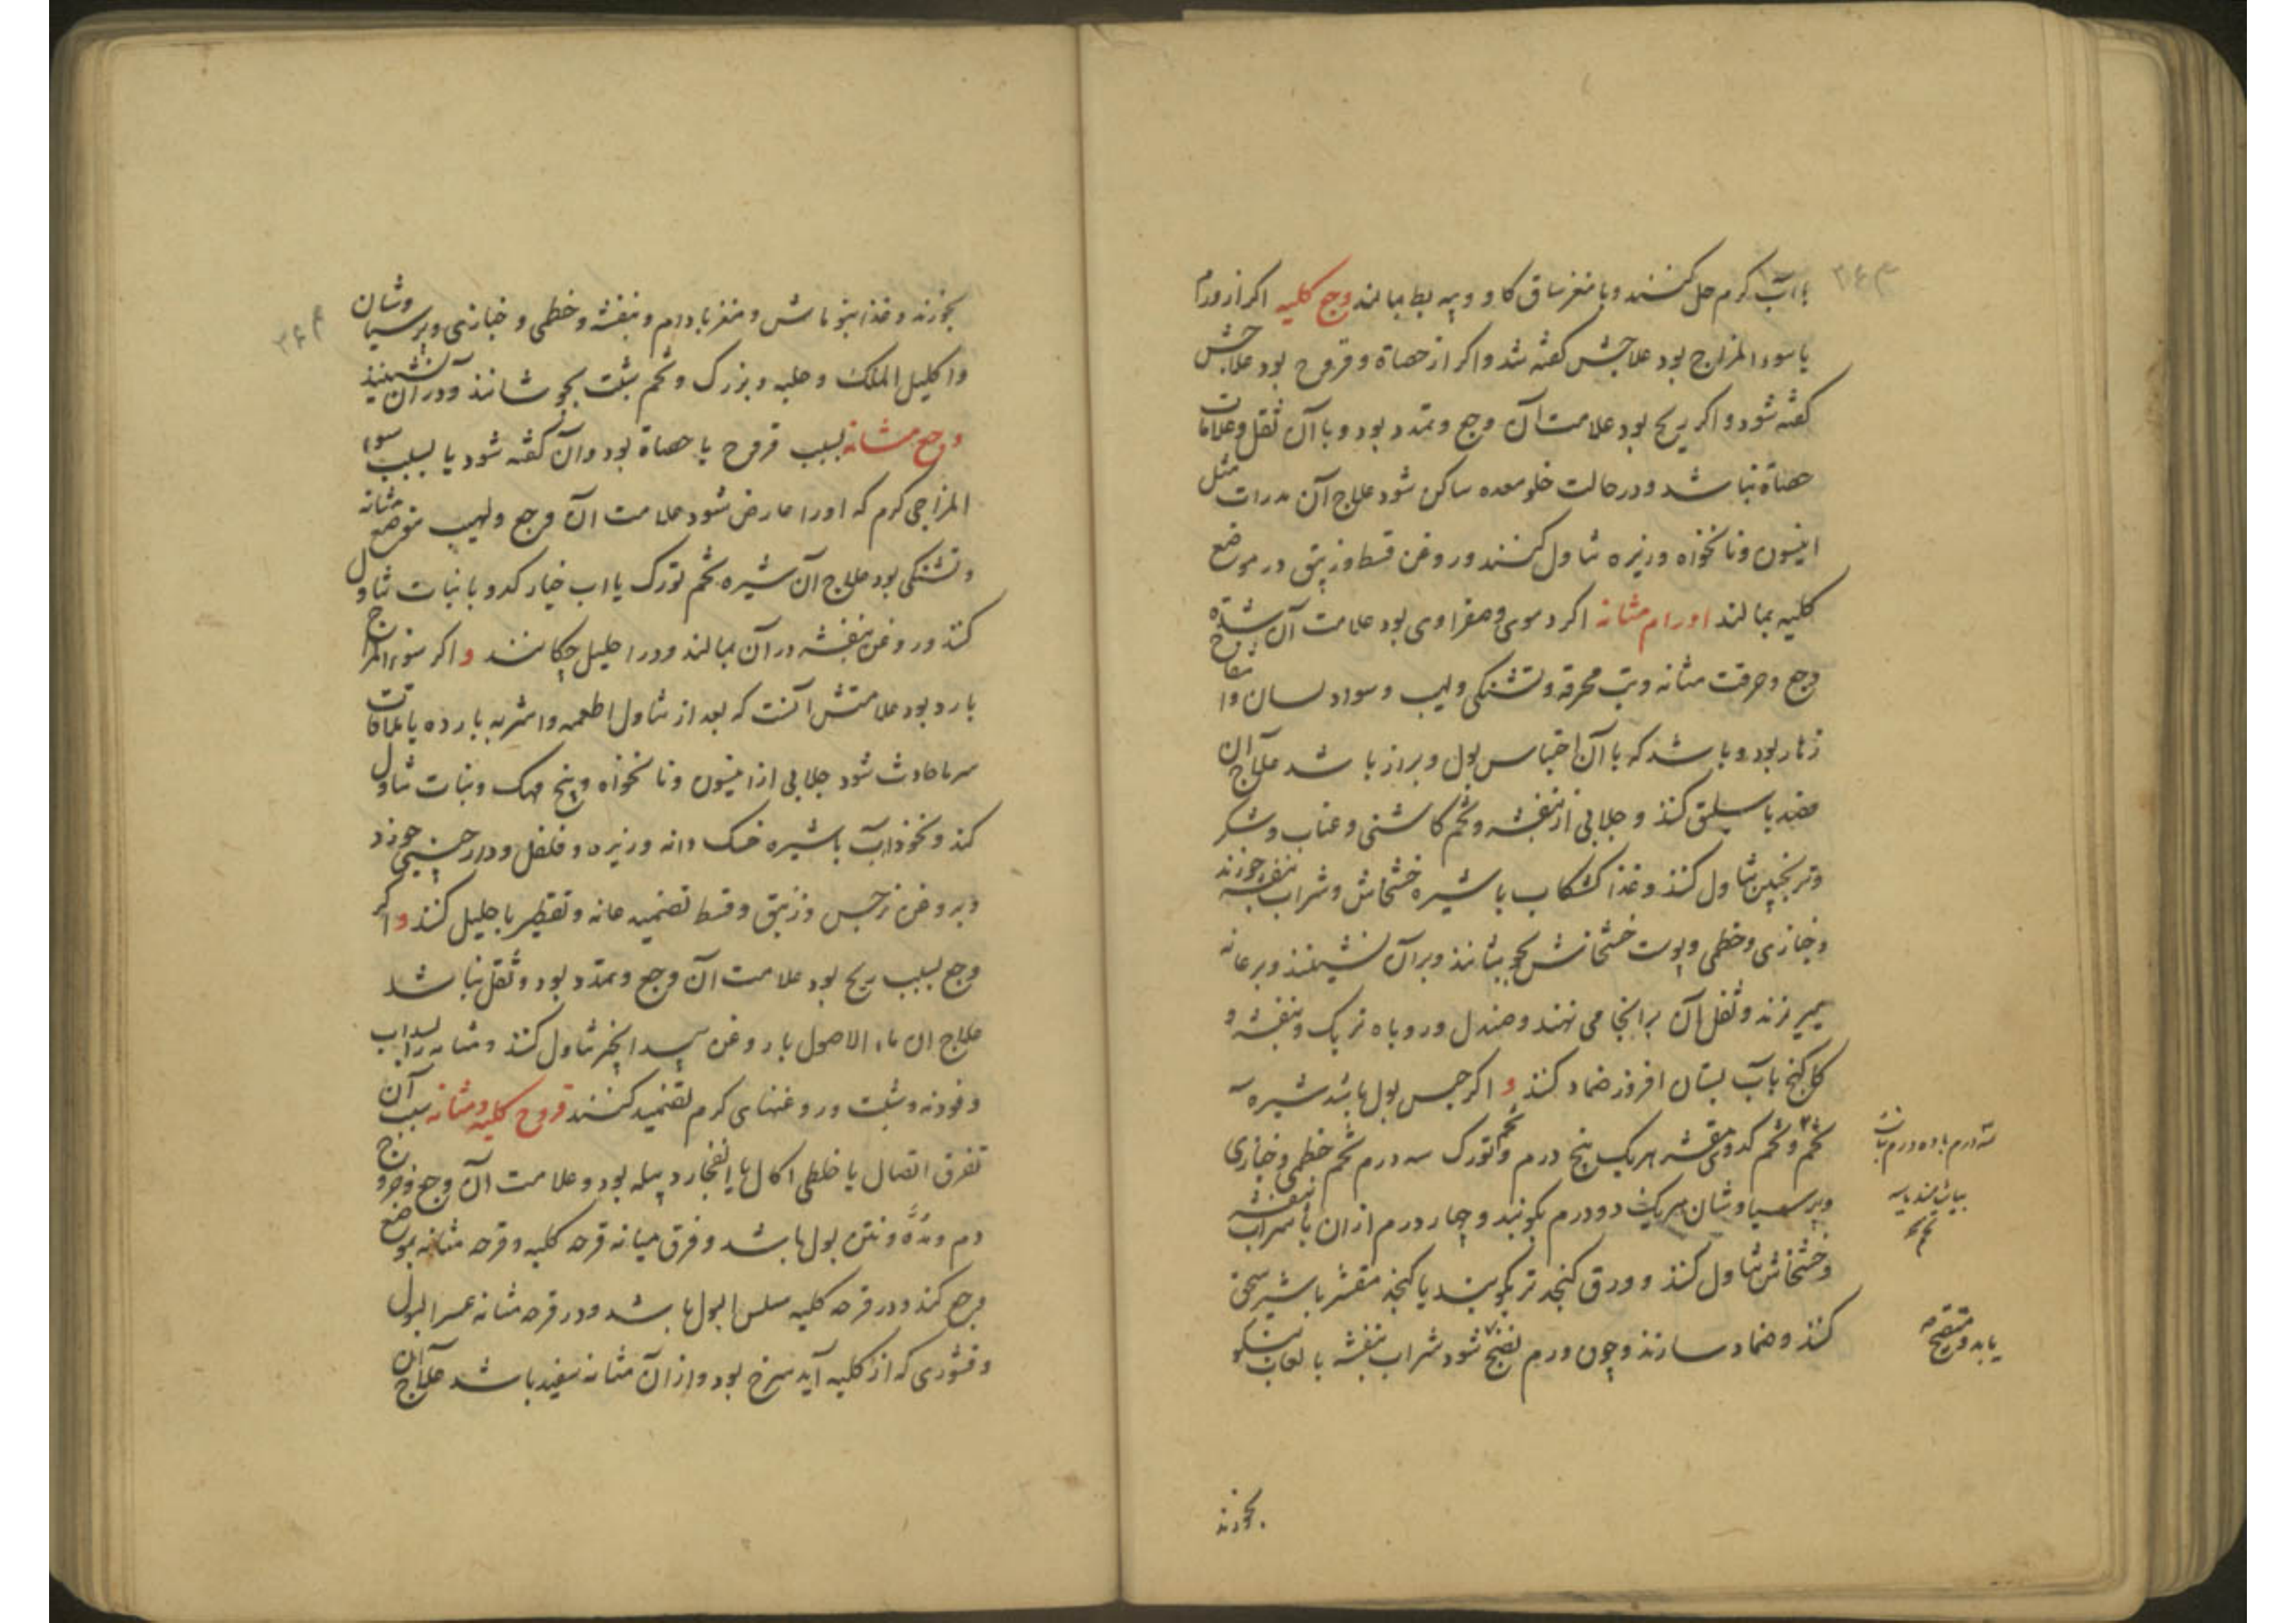 بآب کرم حل کنند و با مغز ساق کاو و پیه بط بمالند وجع کلیه اکر از ورم
یا سوء المزاج بود علاجش کفته شد و اکر از حصاة و قروح بود علاجش
کفته شود و اکر ریح بود علامت آن وجع و تمدد بود و با آن ثقل و علامات
حصاة نباشد و در حالت خلو معده ساکن شود علاج آن مدرات مثل
انیسون و نانخواه و زیره تناول کنند و روغن قسط و زیبق در موضع
کلیه بمالند اورام مثانه اکر دموی و صفراوی بود علامت آن شدة
وجع و حرقت مثانه و تب محرقه و تشنکی و لهب و سواد لسان و انتفاخ
زهار بود و باشد که با آن احتباس بول و براز باشد علاج آن
فصد باسلیق کنند و جلابی از بنفشه و تخم کاسنی و عناب و شکر
و ترنجبین تناول کنند و غذا کشکاب با شیره خشخاش و شراب بنفشه خورند
و خبازی و خطمی و پوست خشخاش بجوشانند و بر آن نشینند و بر عانه
میریزند و ثفل آن بر انجا می نهند و صندل و روباه تربک و بنفشه و
کاکنج بآب بستان افروز ضماد کنند و اکر حبس بول باشد شیره
تخم و تخم کدوی مقشر هریک پنج درم و تخم تورک سه درم تخم خطمی و خبازی
و پرسیاوشان هریک دو درم بکوبند و چهار درم از ان با شراب بنفشه
و خشخاش تناول کنند و ورق کنجد تر بکوبند یا کنجد مقشر با شیر سحق
کنند و ضماد سازند و چون ورم نضج شود شراب بنفشه با لعاب
یابد و متقیح
بخورند
بخورند و غذا بتوماش و مغز بادام و بنفشه و خطمی و خبازی و پرسیاوشان
و اکلیل الملک و حلبه و بزرک و تخم شبت بجوشانند و در آن نشینند
وجع مثانه بسبب قروح یا حصاة بود و آن کفته شود یا بسبب سوء
المزاجی کرم که او را عارض شود علامت آن وجع و لهیب موضع مثانه
و تشنکی بود علاج آن شیره تخم تورک یا اب خیار کدو با نبات تناول
کنند و روغن بنفشه در آن بمالند و در احلیل چکانند و اکر سوء المزاج
بارد بود علامتش آنست که بعد از تناول اطعمه و اشربه بارده یا ملاقات
سرما حادث شود جلابی از انیسون و نانخواه و بیخ مهک و نبات تناول
کند و نخوداب با شیره خسک دانه و زیره و فلفل و دارچینی خورد
و بروغن نرجس و زنبق و قسط تضمید عانه و تقطیر باحلیل کنند و اکر
وجع بسبب ریح بود علامت آن وجع و تمدد بود و ثقل نباشد
علاج ان ماء الاصول با روغن بید انجیر تناول کنند و مثانه را بسداب
و فودنه و شبت و روغنهای کرم تضمید کنند قروح کلیه و مثانه سبب آن
تفرق اتصال یا خلطی اکال یا انفجار دبیله بود و علامت آن وجع و خروج
دم و مدّه و نتن بول باشد و فرق میانه قرحه کلیه و قرحه مثانه بموضع
وجع کند و در قرحه کلیه سلس البول باشد و در قرحه مثانه عسر البول
و قشوری که از کلیه آید سرخ بود و از آن مثانه سفید باشد علاج آن